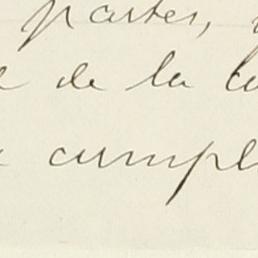 partes,
de la
cumpl